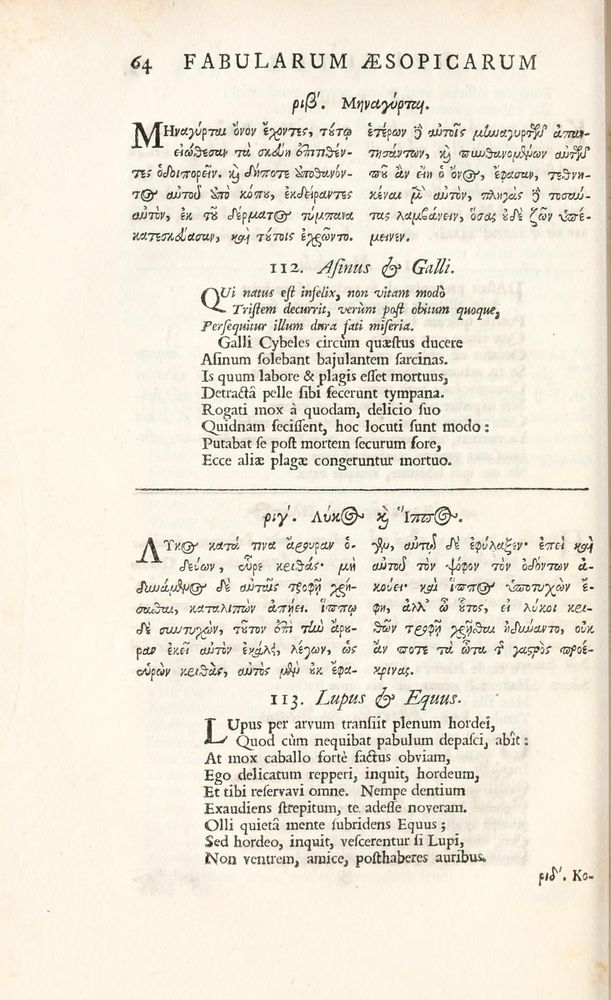 64 FABULARUM ÆSOPICARUM
ριβʹ. Μηναγύρται.
ΜΗναγύρται ὄνον ἔχοντες, τούτῳ
εἰώθεσαν τὰ σκεύη ἐπιτιθέν-
τες ὁδοιπορεῖν. καὶ δήποτε ἀποθανόν-
τος αὐτοῦ ὑπὸ κόπου, ἐκδείραντες
αὐτὸν, ἐκ τοῦ δέρματος τύμπανα
κατεσκεύασαν, καὶ τούτοις ἐχρῶντο.
ἑτέρων δὲ αὐτοῖς μηναγυρτῶν ἀπαν-
τησάντων, καὶ πυνθανομένων αὐτῶν
ποῦ ἂν εἴη ὁ ὄνος, ἔφασαν, τεθνη-
κέναι μὲν αὐτὸν, πληγὰς δὲ τοσαύ-
τας λαμβάνειν, ὅσας οὐδὲ ζῶν ὑπέ-
μεινεν.
112. Asinus & Galli.
QUi natus est infelix, non vitam modò
Tristem decurrit, verùm post obitum quoque,
Persequitur illum dura fati miseria.
Galli Cybeles circùm quæstus ducere
Asinum solebant bajulantem sarcinas.
Is quum labore & plagis esset mortuus,
Detractâ pelle sibi fecerunt tympana.
Rogati mox à quodam, delicio suo
Quidnam fecissent, hoc locuti sunt modo:
Putabat se post mortem securum fore,
Ecce aliæ plagæ congeruntur mortuo.
ριγʹ. Λύκος καὶ Ἵππος.
ΛΥκος κατά τινα ἄρουραν ὁ-
δεύων, εὗρε κριθάς· μὴ
δυνάμενος δὲ αὐταῖς τροφῇ χρή-
σασθαι, καταλιπὼν ἀπῄει. ἵππῳ
δὲ συντυχὼν, τοῦτον ἐπὶ τὴν ἄρου-
ραν ἐκεῖ αὐτὸν ἐκάλει, λέγων, ὡς
εὑρὼν κριθὰς, αὐτὸς μὲν οὐκ ἔφα-
γεν, αὐτῷ δὲ ἐφύλαξεν· ἐπεὶ καὶ
αὐτοῦ τὸν ψόφον τὸν ὀδόντων ἀ-
κούει· καὶ ἵππος ὑποτυχὼν ἔ-
φη, ἀλλʼ ὦ οὗτος, εἰ λύκοι κρι-
θῶν τροφῇ χρῆσθαι ἠδύναντο, οὐκ
ἄν ποτε τὰ ὦτα τῆς γαστρὸς προέ-
κρινας.
113. Lupus & Equus.
LUpus per arvum transiit plenum hordei,
Quod cùm nequibat pabulum depasci, abît:
At mox caballo fortè factus obviam,
Ego delicatum repperi, inquit, hordeum,
Et tibi reservavi omne. Nempe dentium
Exaudiens strepitum, te adesse noveram.
Olli quietâ mente subridens Equus;
Sed hordeo, inquit, vescerentur si Lupi,
Non ventrem, amice, posthaberes auribus.
ριδʹ. Κο-